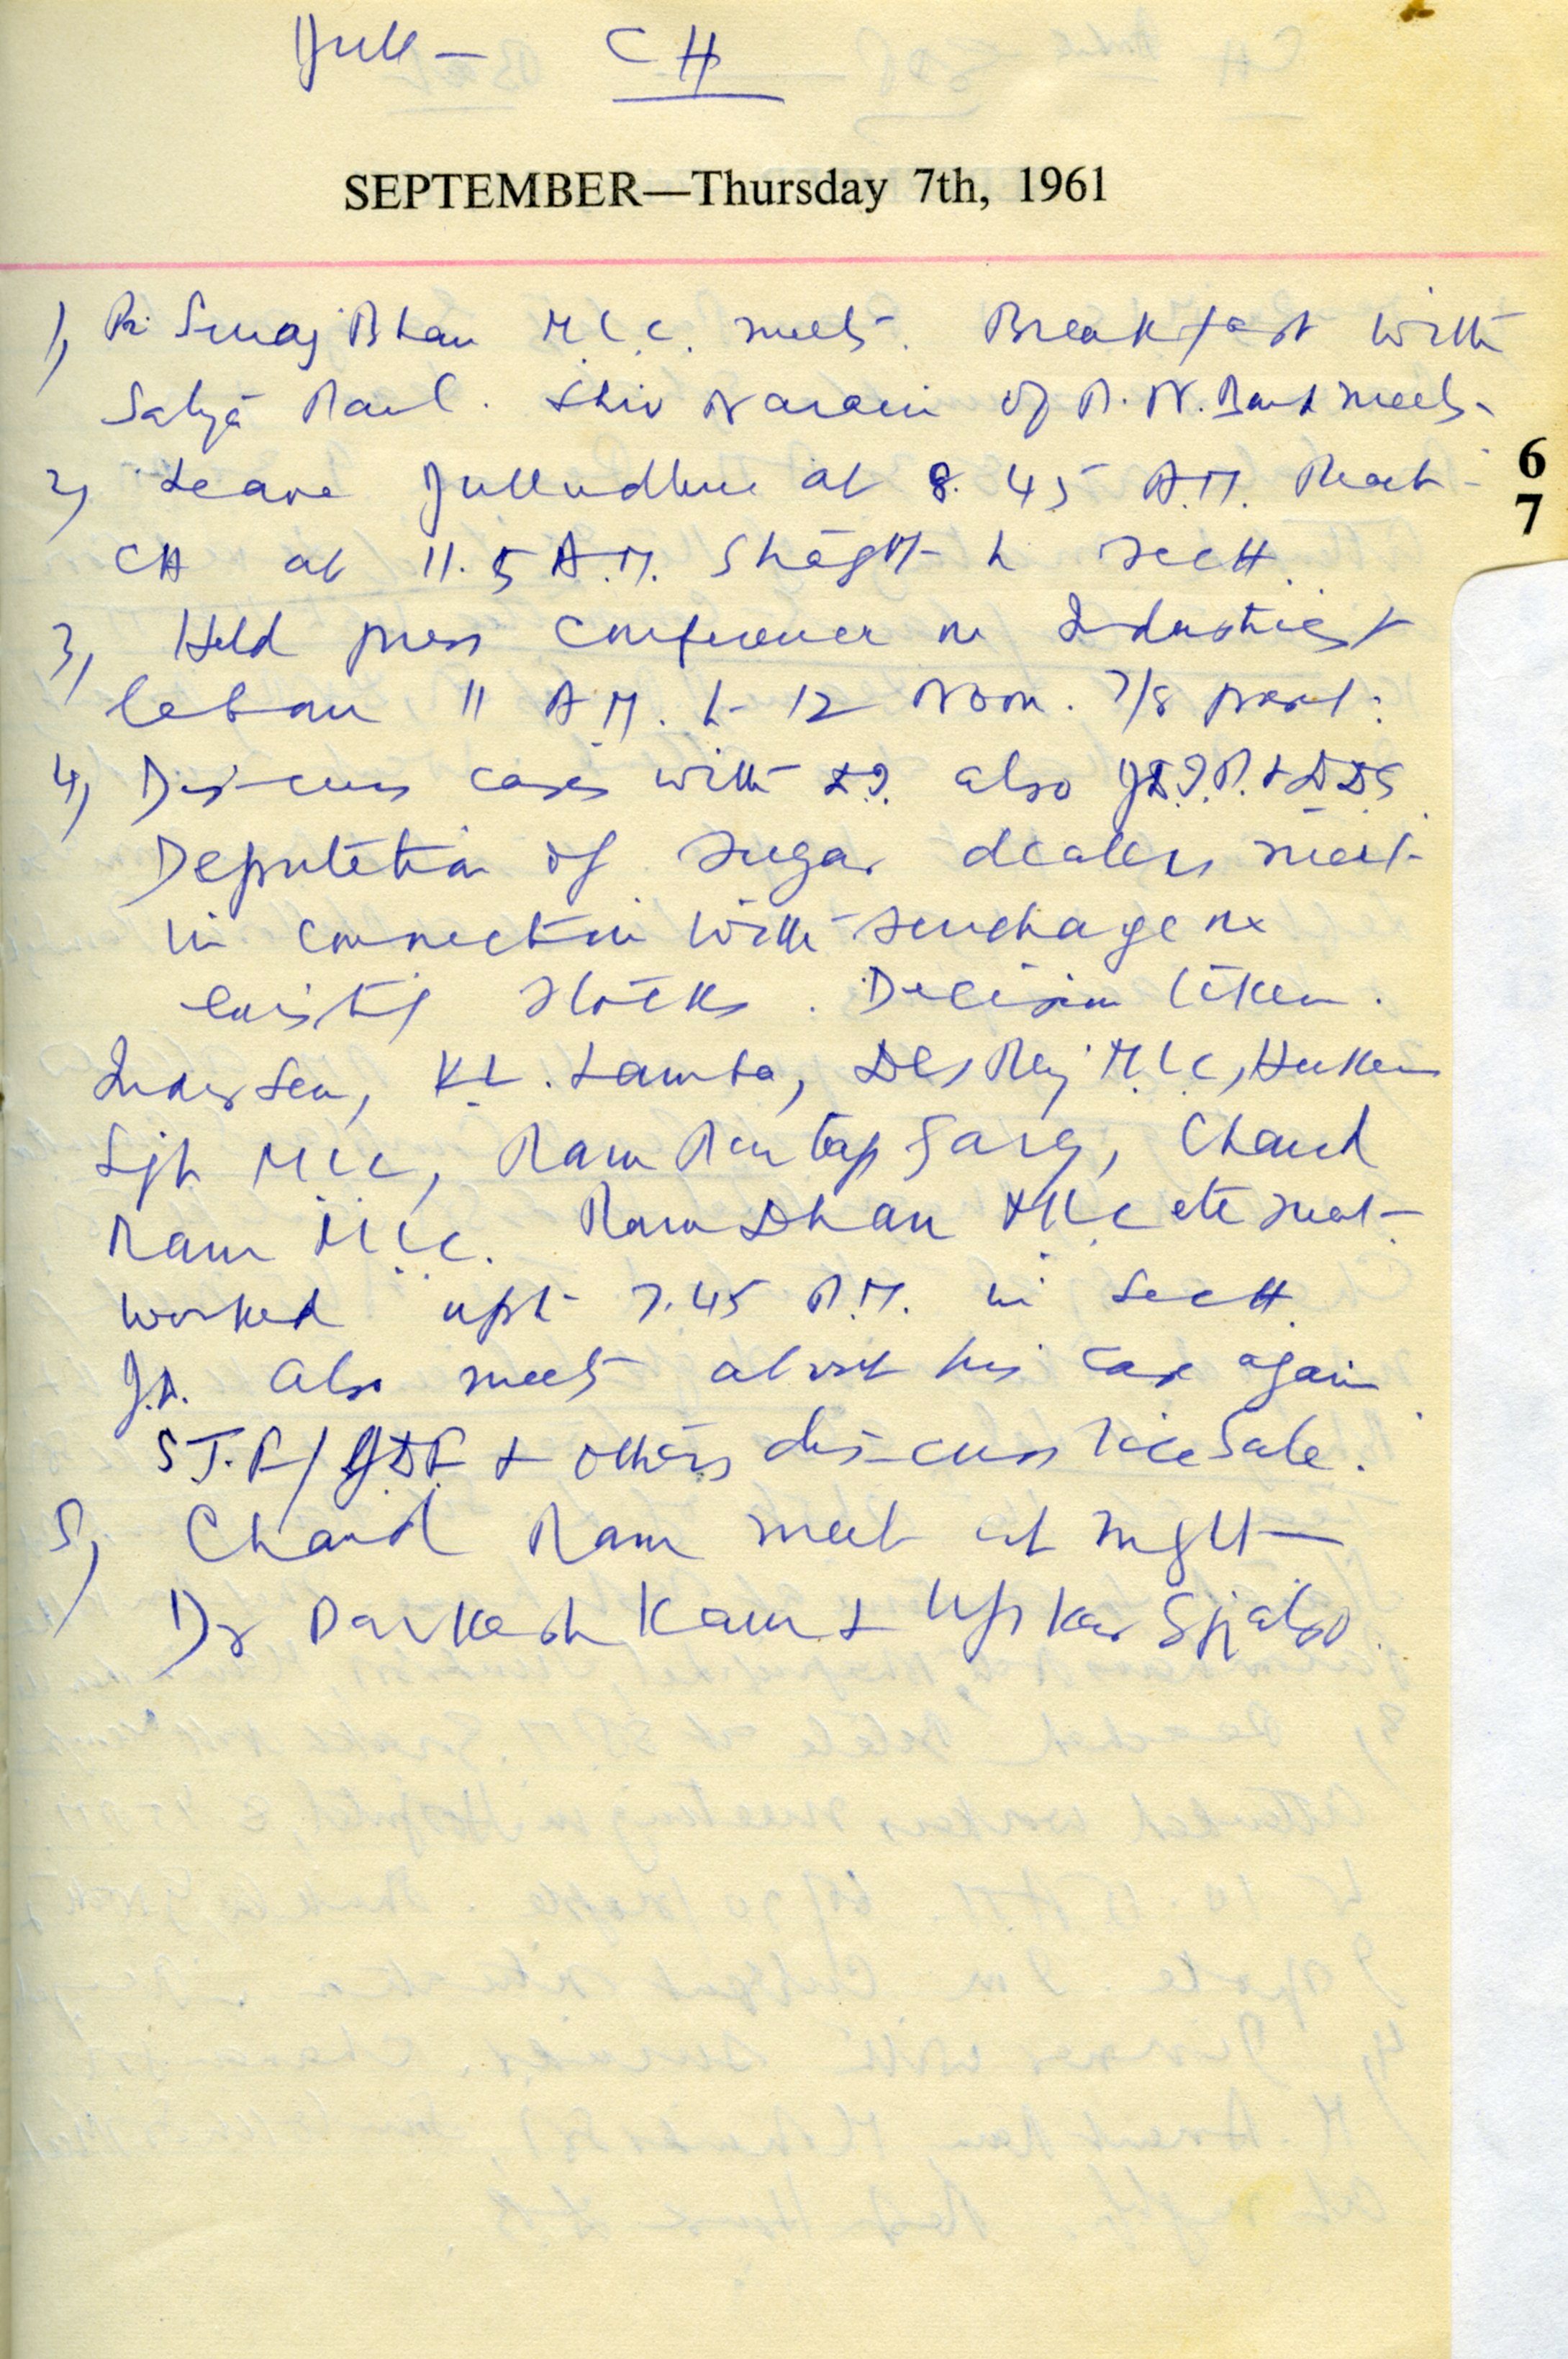 Jull — CH
SEPTEMBER—Thursday 7th, 1961
1) Pri Suraj Bhan M.L.C. meets. Breakfast with
Satya Paul. Shiv Narain of P.N. Bank meets
2) Leave Jullundhur at 8.45 A.M. Reach
CH at 11.5 A.M. Straght to Sectt.
3) Held press conference on Industrial
11 A.M. to 12 Noon. 7/8 present.
4) Discuss cases with also
Deputation of sugar dealers meet
in connection with surcharge on
existing stocks. Decision taken.
Inder Sen, K.L. Lamba, Des Raj M.L.C, Hukam
Sigh MLC, Ram Partap Garg, Chand
Ram M.L.C. Ram Dhan MLC etc meet
worked upto 7.45 P.M. in Sectt.
also meets about his case again
& others discuss rice sale.
5) Chand Ram meet at night
Dr Parkash Kaur & Upkar also.
6
7